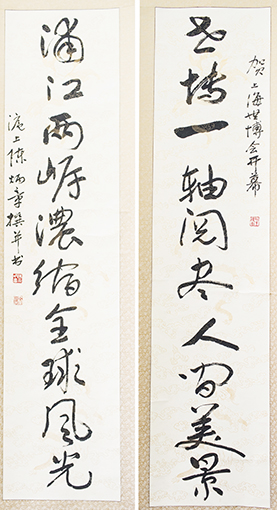 贺上海世博会开幕
世博一轴阅尽人间美景
浦江两岸浓缩全球风光
沪上陈炳章撰并书